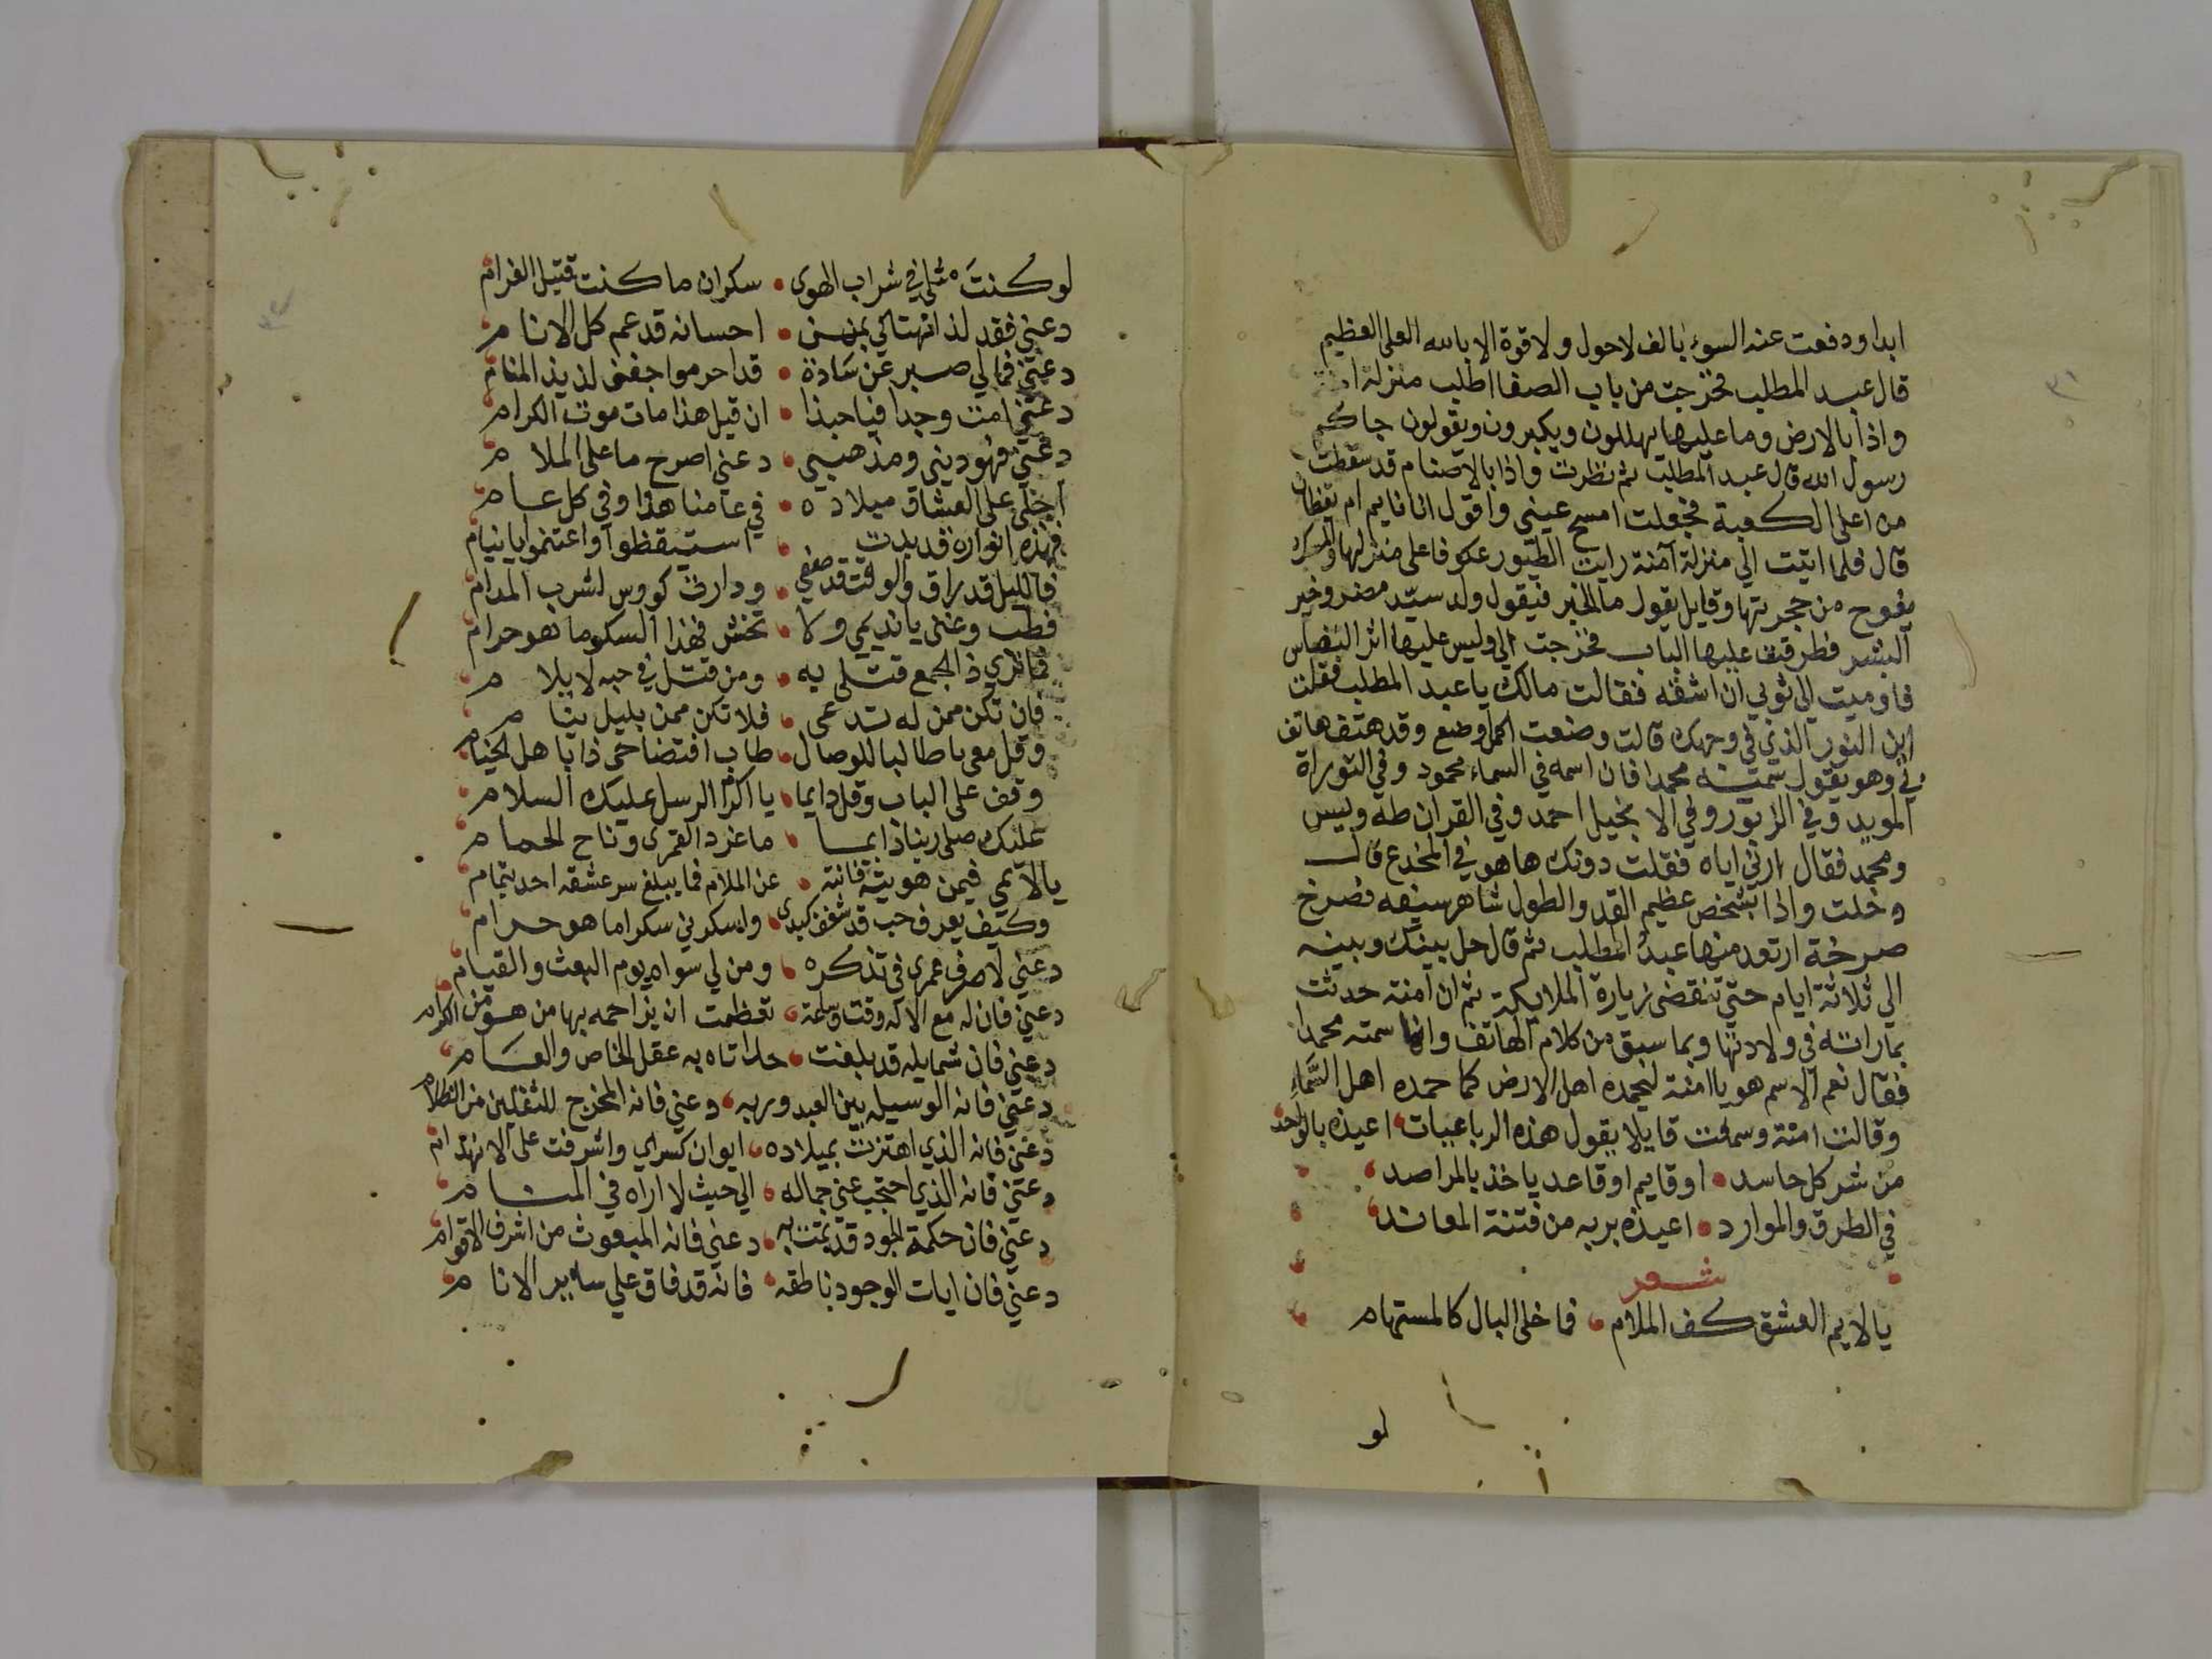 ابدا ودفعت عنه السوء بالف لاحول ولا قوة الا بالله العلي العظيم
قال عبد المطلب فخرجت من باب الصفا اطلب منزله
واذا بالارض وما عليها يهللون ويكبرون ويقولون جاكم
رسول الله قال عبد المطلب ثم نظرت واذا بالاصنام قد سقطت
من اعلي الكعبة فجعلت امسح عيني واقول انا نايم ام يقظان
قال فلما اتيت الي منزلة آمنة رايت الطيور عكوفا علي منزلها والمسك
يفوح من حجرتها وقايل يقول ما الخبر فيقول ولد سيد مضر وخير
البشر فطرقت عليها الباب فخرجت الي وليس عليها اثر النفاس
فاوميت الي ثوبي ان اشقه فقالت مالك يا عبد المطلب فقلت
اين النور الذي في وجهك قالت وضعت الحمل وضع وقد هتف هاتف
بي وهو يقول سمته محمدا فان اسمه في السماء محمود وفي التوراة
المويد وفي الزبور وفي الانجيل احمد وفي القران طه ويس
ومحمد فقال ارني اياه فقلت دونك ها هو في المخدع قال
دخلت واذا بشخص عظيم القد والطول شاهر سيفه فصرخ
صرخة ارتعد منها عبد المطلب ثم قال حل بينك وبينه
الي ثلاثة ايام حتي تنقضي زيارة الملايكة ثم ان آمنة حدثت
بما راته في ولادتها وبما سبق من كلام الهاتف وانها سمته محمدا
فقال نعم الاسم هو يا امنة ليحمده اهل الارض كما حمده اهل السماء
وقالت امنة وسمعت قايلا يقول هذه الرباعيات اعيذه بالواحد
من شر كل حاسد او قايم او قاعد ياخذ بالمراصد
في الطرق والموارد اعيذه بربه من فتنة المعاند
شعر
يا لايم العشق كف الملام فما خلي البال كالمستهام
لو
لو كنت مثلي في شراب الهوي سكران ما كنت قتيل الغرام
دعني فقد لذ انهتاكي بمن احسانه قد عم كل الانام
دعني فما لي صبر عن سادة قد احرموا جفني لذيذ المنام
دعني امت وجدا فيا حبذا ان قيل هذا مات موت الكرام
دعني فهو ديني ومذهبي دعني اصرح ما علي الملام
اجلي علي العشاق ميلاده في عامنا هذا وفي كل عام
فهذه انواره قد بدت استيقظوا واغتنموا يا نيام
فالليل قد راق والوقت قد صفي ودارت كووس لشرب المدام
فطب وغني يا نديمي ولا تخش فهذا السكر ما هو حرام
فما تري ذا الجمع قتلي به ومن قتل في حبه لا يلام
فان تكن ممن له تدعي فلا تكن ممن بليل ينام
وقل معي يا طالبا للوصال طاب افتضاحي ذا يا اهل الخيام
وقف علي الباب وقل دايما يا اكرم الرسل عليك السلام
عليك صلي ربنا دايما ما غرد القمري وناح الحمام
يا لايمي فيمن هويته فانته عن الملام فما يبلغ سر عشقه احد بتمام
وكيف يعرف حب قد شغف كبدي واسكرني سكرا ما هو حرام
دعني لاصرف عمري في تذكره ومن لي سواه يوم البعث والقيام
دعني فان له مع الاله وقت وساعة تعظمت ان يزاحمه بها من هو من الكرام
دعني فان شمايله قد بلغت حدا تاه به عقل الخاص والعام
دعني فانه الوسيله بين العبد وربه دعني فانه المخرج للثقلين من الظلام
دعني فانه الذي اهتزت بميلاده ايوان كسراي واشرفت علي الانهدام
دعني فانه الذي احتجب عني جماله الي حيث لا اراه في المنام
دعني فان حكمة الجود قد تمت به دعني فانه المبعوث من اشرف الاقوام
دعني فان ايات الوجود ناطقه فانه قد فاق علي ساير الانام